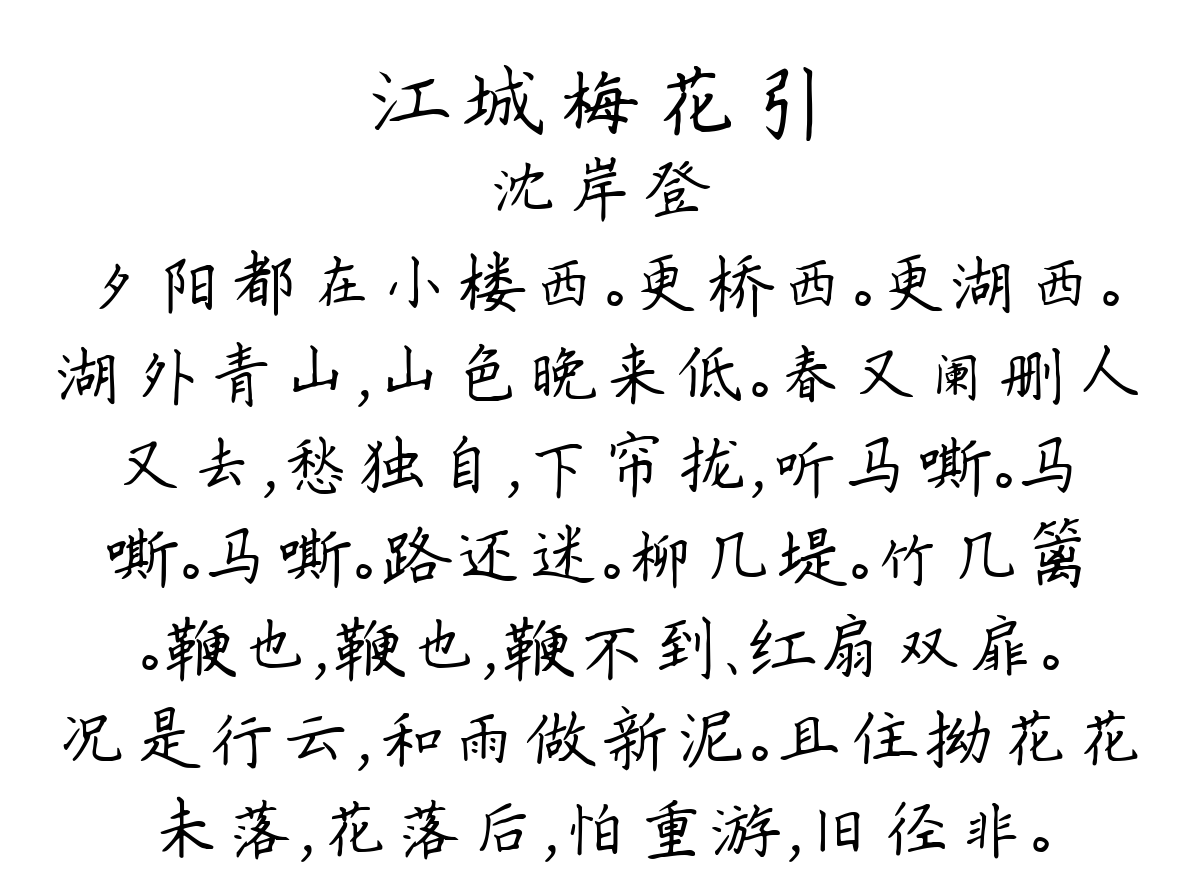 江城梅花引
沈岸登
夕阳都在小楼西。更桥西。更湖西。
湖外青山,山色晚来低。春又阑删人
又去,愁独自,下帘拢,听马嘶。马
嘶。马嘶。路还迷。柳几堤。竹几篱
。鞭也,鞭也,鞭不到、红扇双扉。
况是行云,和雨做新泥。且住拗花花
未落,花落后,怕重游,旧径非。